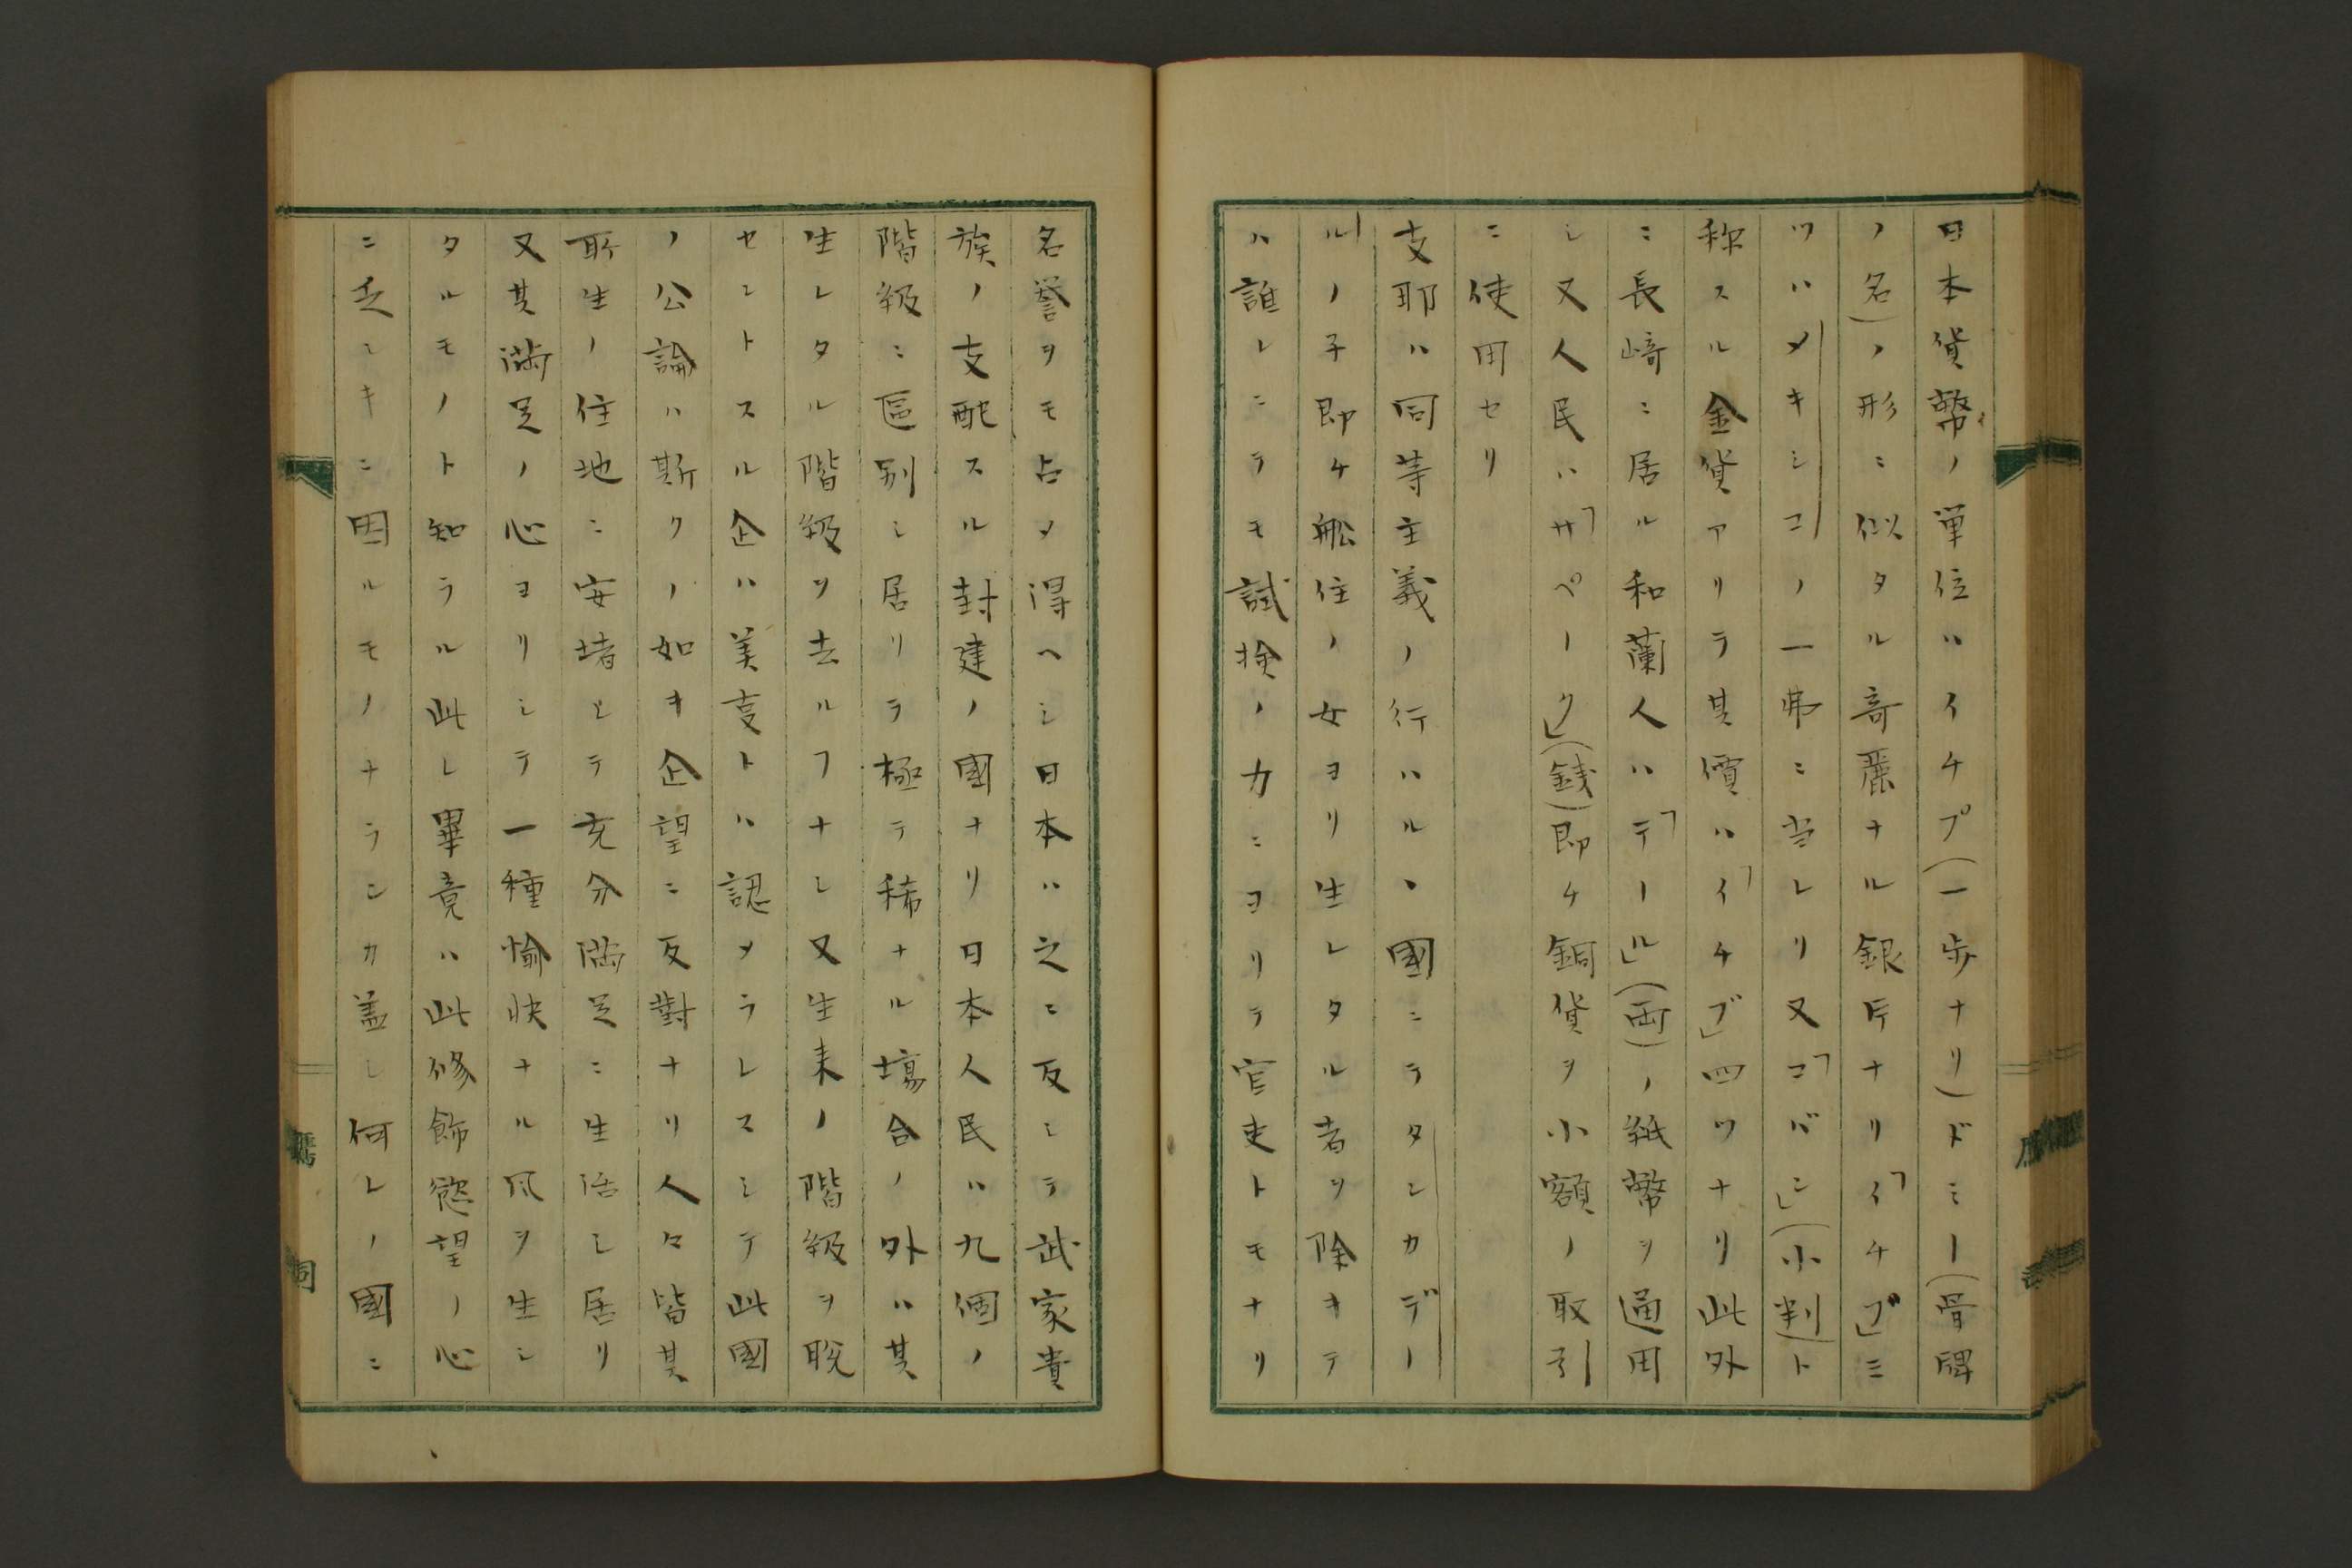 日本貨幣ノ単位ハイチブ(一歩ナリ)ドミー(骨牌
ノ名)ノ形ニ似タル奇麗ナル銀片ナリ「イチブ」三
ツハメキシコノ一弗ニ当レリ又「コバン」(小判)ト
称スル金貨アリテ其價ハ「イチブ」四ツナリ此外
ニ長﨑ニ居ル和蘭人ハ「テール」(両)ノ紙幣ヲ通用
シ又人民ハ「サペーク」(銭)即チ銅貨ヲ小額ノ取引
ニ使用セリ
支耶ハ同等主義ノ行ハルヽ國ニテタンカデー
ルノ子即チ舩住ノ女ヨリ生レタル者ヲ除キテ
ハ誰レニテモ試検ノ力ニヨリテ官吏トモナリ
名誉ヲモ占メ得ヘシ日本ハ之ニ反シテ武家貴
族ノ支配スル封建ノ國ナリ日本人民ハ九個ノ
階級ニ區别シ居リテ極テ稀ナル塲合ノ外ハ其
生レタル階級ヲ去ルフナシ又生来ノ階級ヲ脱
セントスル企ハ美㕝トハ認メラレスシテ此國
ノ公論ハ斯クノ如キ企望ニ反對ナリ人々皆其
所生ノ住地ニ安堵シテ充分満足ニ生活シ居リ
又其満足ノ心ヨリシテ一種愉快ナル風ヲ生シ
タルモノト知ラル此レ畢竟ハ此修飾慾望ノ心
ニ乏シキニ因ルモノナランカ盖シ何レノ國ニ